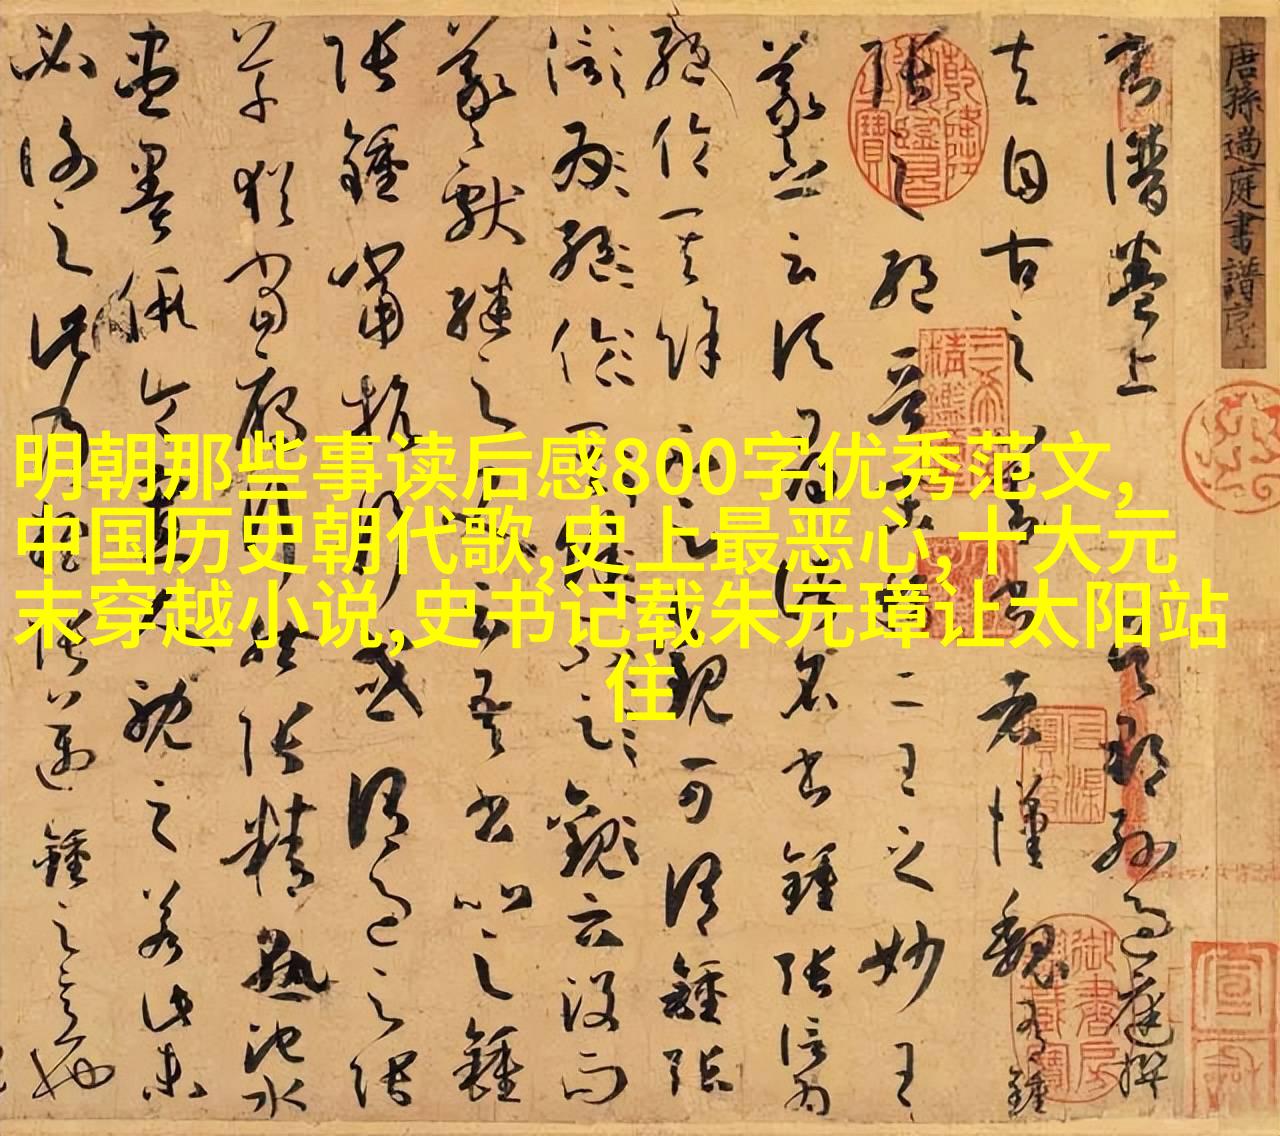 明朝那些事读后感800字优秀范文,
中国历史朝代歌,史上最恶心,十大元
末穿越小说,史书记载朱元璋让太阳站
住
唐孫過庭書譜序上
書譜卷上 吳郡孫過庭撰
夫自古之善書者漢魏有鍾
張之絕晉末稱二王之妙王
羲之云頃尋諸名書鍾張信為
絕倫其餘不足觀可謂鍾張
云沒而
羲獻繼之又云吾書比之鍾
張鍾當抗行或謂過之張
草猶當雁行然張精熟池水
盡墨假令寡人耽之若此未
必謝之此乃推張邁鍾之意也